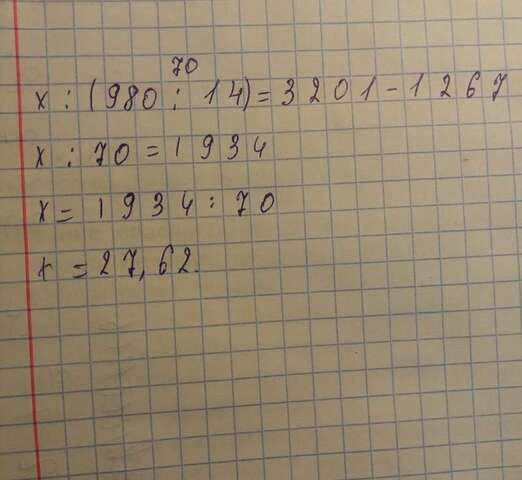 70
x : (980 : 14) = 3201 - 1267
x : 70 = 1934
x = 1934 : 70
x = 27,62.